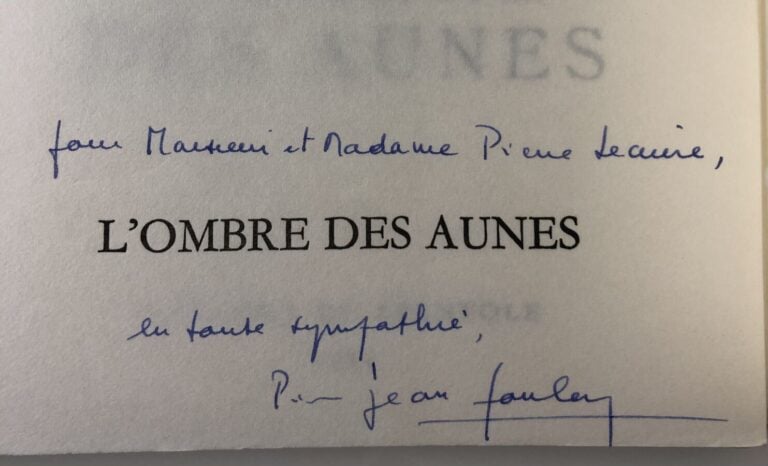 DES AUNES
pour Monsieur et Madame Pierre Lecuire,
L'OMBRE DES AUNES
en toute sympathie,
Pierre Jean